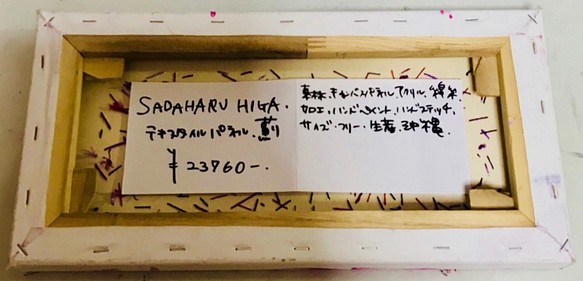 SADAHARU HIGA.
テキスタイルパネル.
¥23760-.
素材.キャンバスパネル アクリル.綿糸
加工.ハンドペイント.ハンドステッチ.
サイズ.フリー.生産.沖縄.